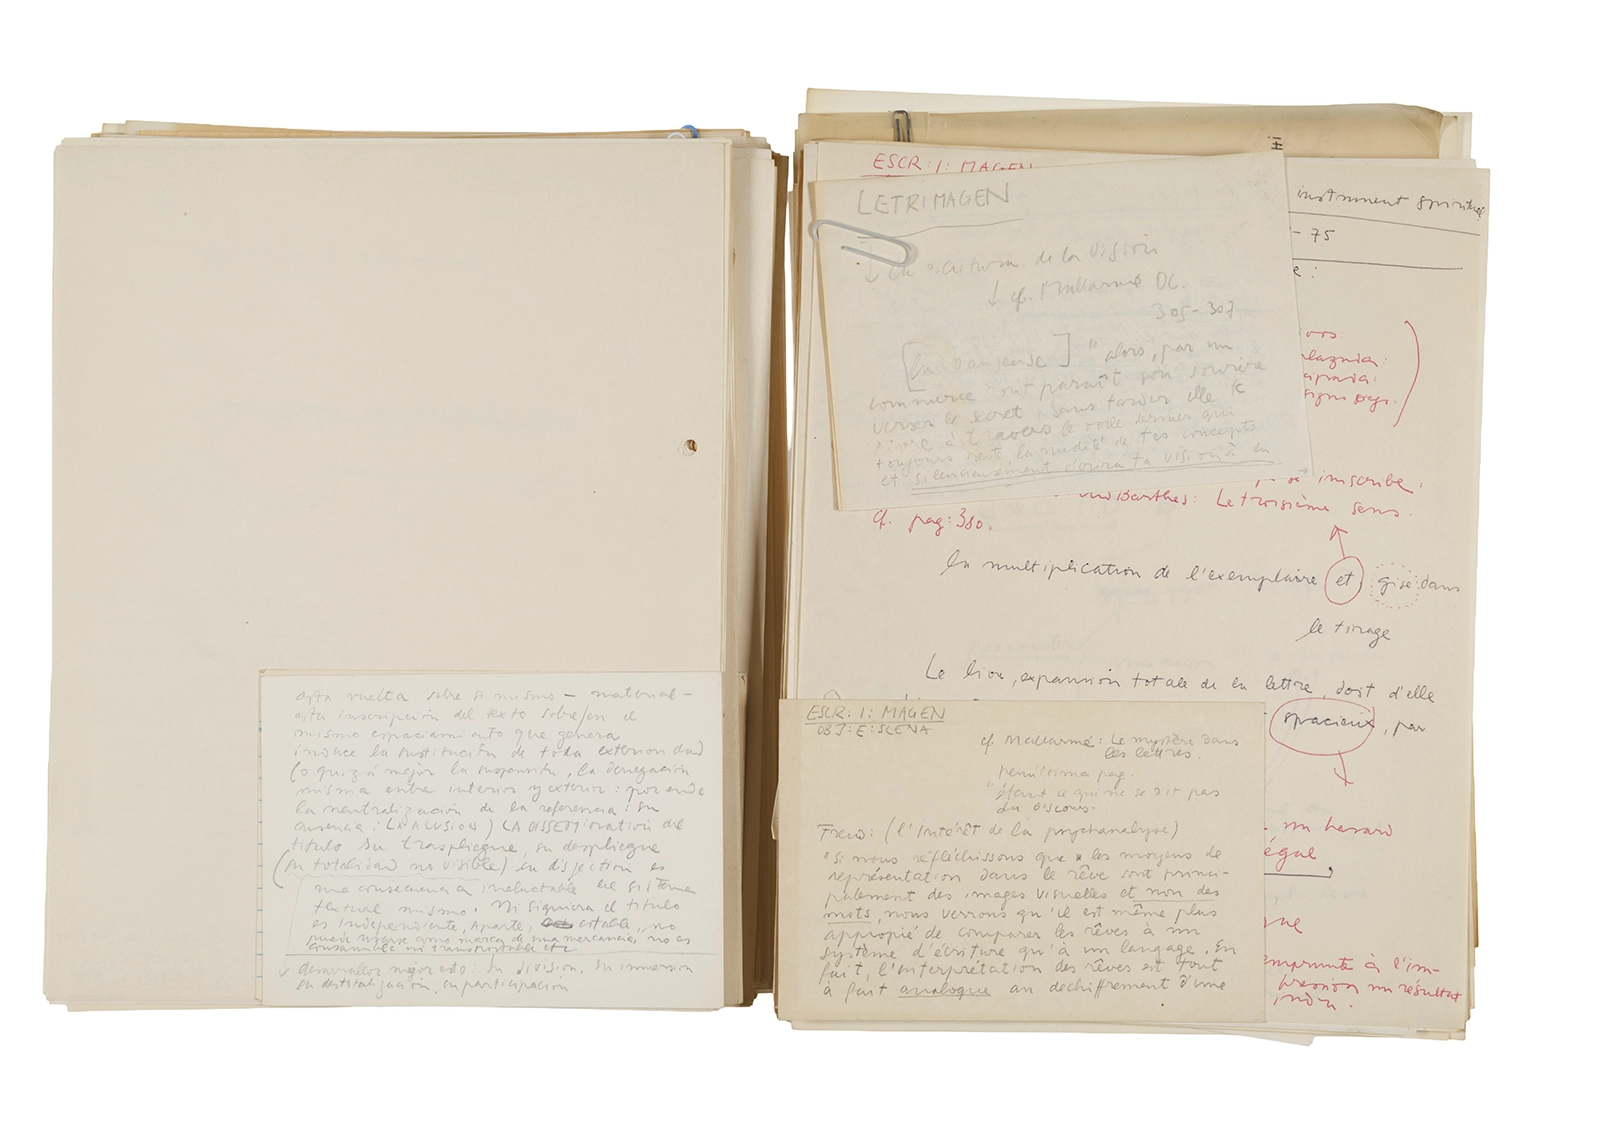 esta vuelta sobre si mismo – material –
esta inscripción del texto sobre/en el
mismo espaciamiento que genera
induce la sustitución de toda exterioridad
(o quizá mejor la suspensión, la denegación
misma entre interior y exterior: por ende
la neutralización de la referencia: su
ausencia: LA ALUSION) LA DISSEMINATION del
titulo su traspliegue, su despliegue
(su totalidad no visible) su disjection es
una consecuencia ineluctable del sistema
textual mismo. Ni siquiera el titulo
es independiente, aparte, citable, no
puede usarse como marca de una mercancia, no es
consumible ni transportable etc
desarrollar mejor esto: su división, su inmersión
su destitalización, su participación
ESCR: I: MAGEN
LETRIMAGEN
↓ la escritura de la visión
↓ cf. Mallarmé OC.
305-307
[la danseuse] " alors, par un
commerce dont paraît son sourire
verser le secret, sans tarder elle te
livre à travers le voile dernier qui
toujours reste, la nudité de tes concepts
et silencieusement écrira ta vision à la
instrument spirituel
- 75
e:
inscribe.
Barthes: Le troisième sens.
cf. pag: 380.
la multiplication de l'exemplaire et, gise dans
le tirage
Le livre, expansion totale de la lettre, doit d'elle
spacieux, par
ESCR: I: MAGEN
OBJ: E: SCENA
cf. Mallarmé: Le mystère dans
les lettres.
penúltima pag.
"étant ce qui ne se dit pas
du discours.
Freud: (l'intérêt de la psychanalyse)
"Si nous réfléchissons que les moyens de
représentation dans le rêve sont princi-
palement des images visuelles et non des
mots, nous verrons qu'il est même plus
approprié de comparer les rêves à un
système d'écriture qu'à un langage. En
fait, l'interprétation des rêves est tout
à fait analogue au dechiffrement d'une
un hasard
égal
que
emprunte à l'im-
pression un résultat